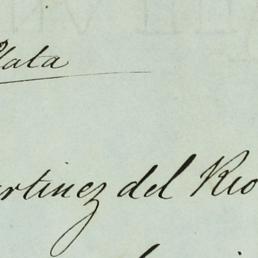 Plata
artinez del Rio